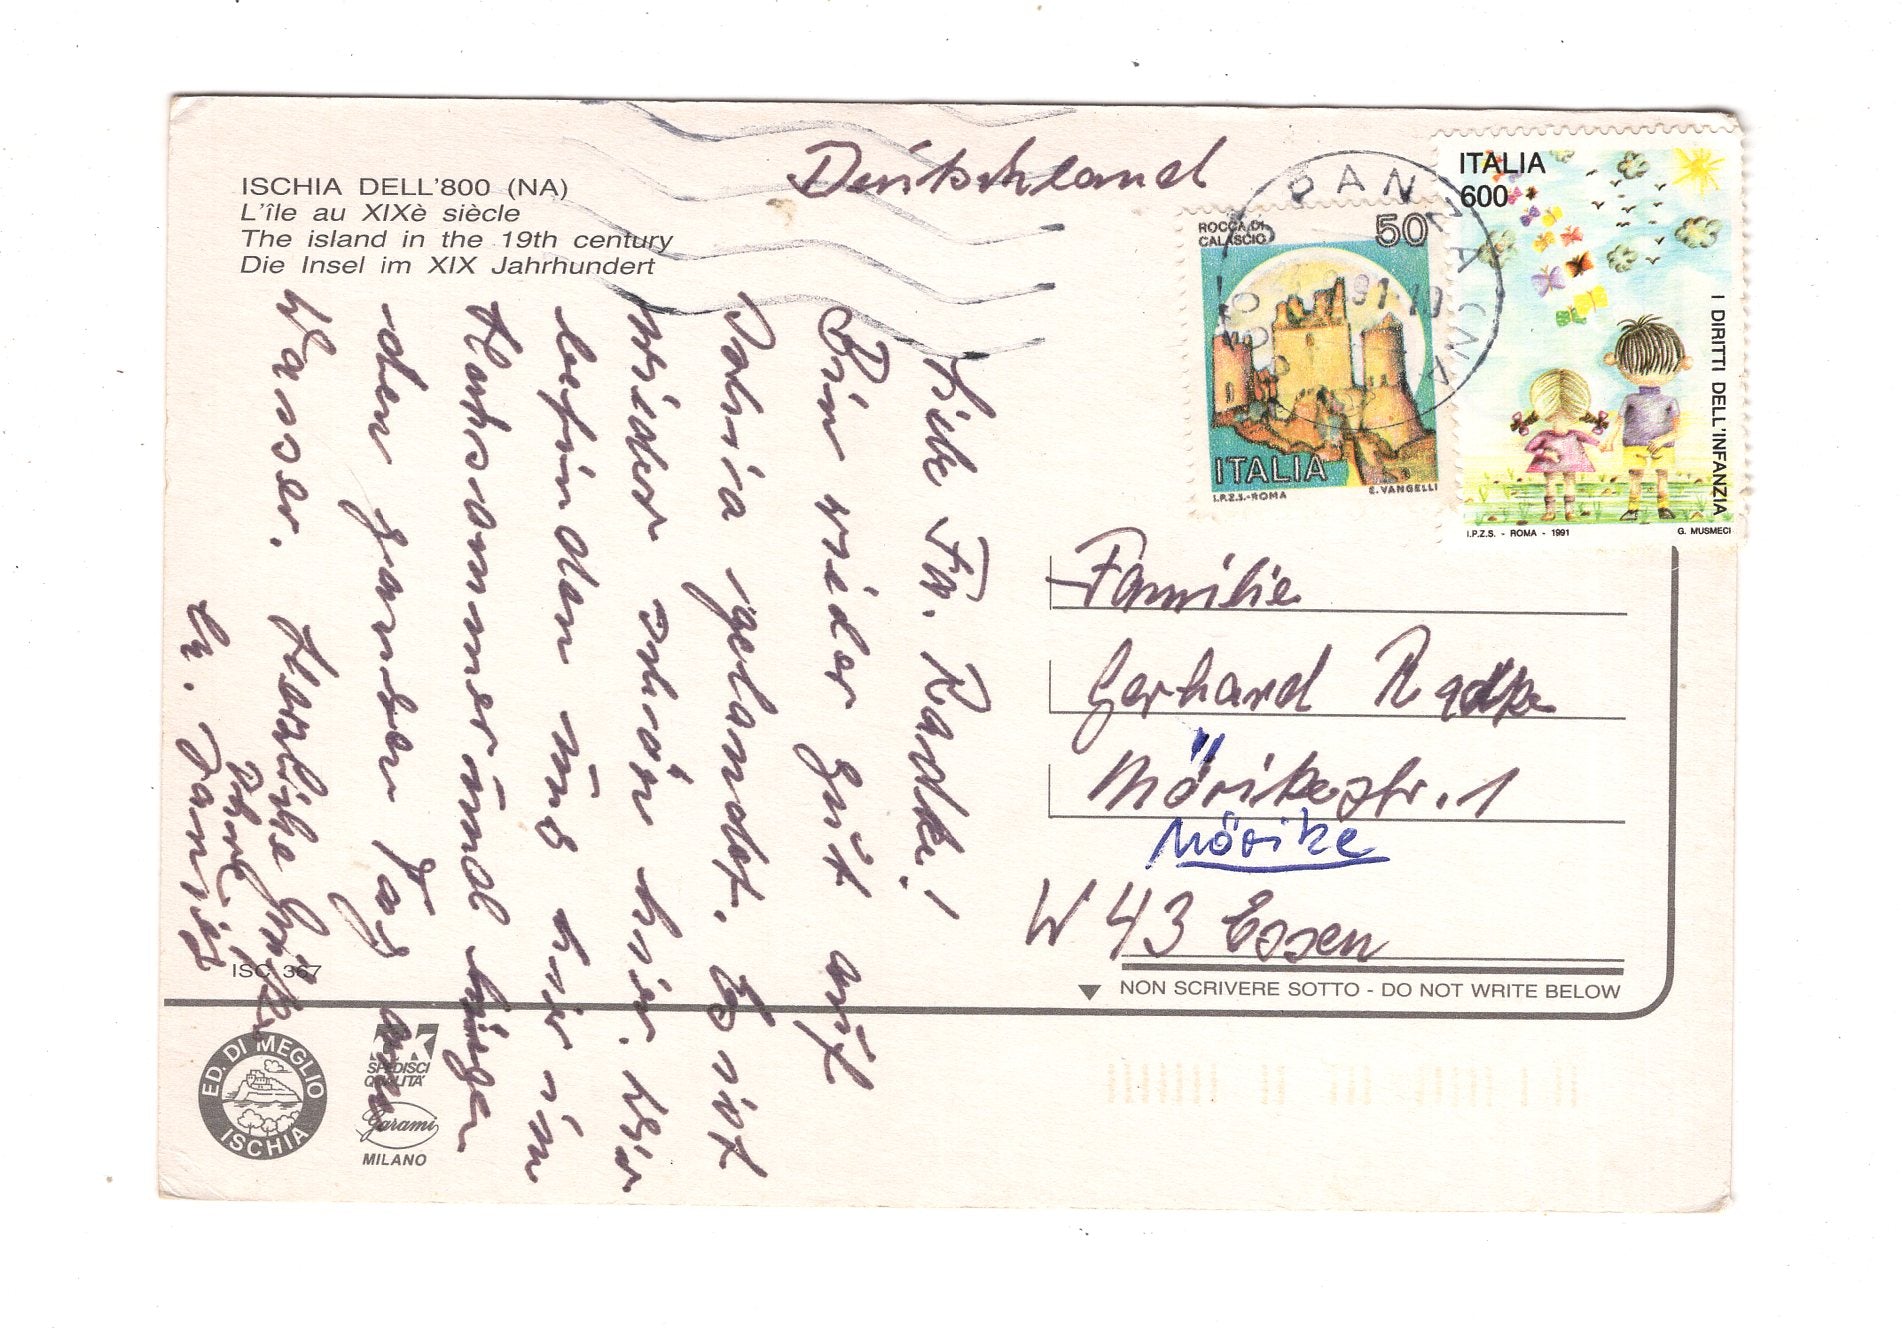 ISCHIA DELL'800 (NA)
L'île au XIXè siècle
The island in the 19th century
Die Insel im XIX Jahrhundert
Deutschland
ROCCA DI
CALASCIO
50
ITALIA
I.P.Z.S.-ROMA E. VANGELLI
ITALIA
600
I DIRITTI DELL'INFANZIA
I.P.Z.S. - ROMA - 1991 G. MUSMECI
PANZA (NA)
91-10
Liebe Fa. Radke!
Bin wieder gut auf
Ischia gelandet. Es ist
wieder schön hier. Wir
befinden uns hier im
Hochsommer und hängen
den ganzen Tag am
Wasser. Herzliche Grüße
Ihre
Familie
Gerhard Radke
Mörikestr. 1
Mörike
W 43 Essen
NON SCRIVERE SOTTO - DO NOT WRITE BELOW
ISC 367
ED. DI MEGLIO
ISCHIA
SPEDISCI
QUALITA'
Garami
MILANO